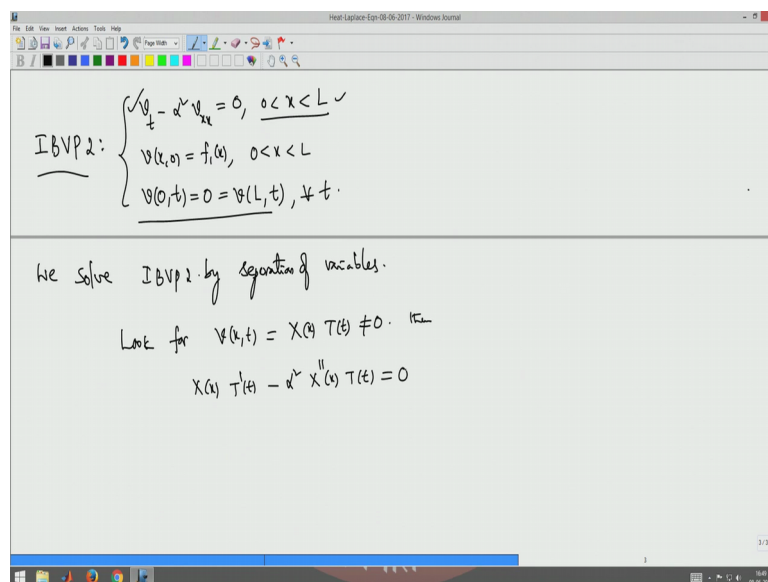 Heat-Laplace-Eqn-08-06-2017 - Windows Journal
File Edit View Insert Actions Tools Help
Page Width
B I
IBVP 2:
v_t - α² v_xx = 0, 0 < x < L
v(x,0) = f₁(x), 0 < x < L
v(0,t) = 0 = v(L,t), ∀ t.
We solve IBVP 2 by separation of variables.
Look for v(x,t) = X(x) T(t) ≠ 0. then
X(x) T'(t) - α² X''(x) T(t) = 0
3/3
3
16:49